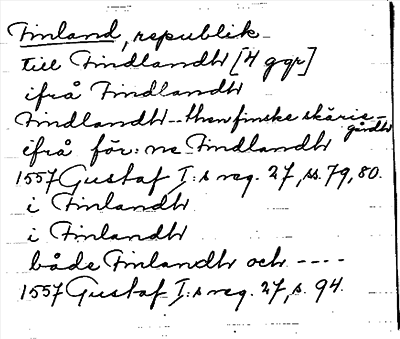 Finland, republik
till Findlandh [4 ggr]
ifrå Findlandh
Findlandh -- then finske skäris-
gårdh
ifrå för:ne Findlandh
1557 Gustaf I:s reg. 27, ss. 79, 80.
i Finlandh
i Finlandh
både Finlandh och ----
1557 Gustaf I:s reg. 27, s. 94.